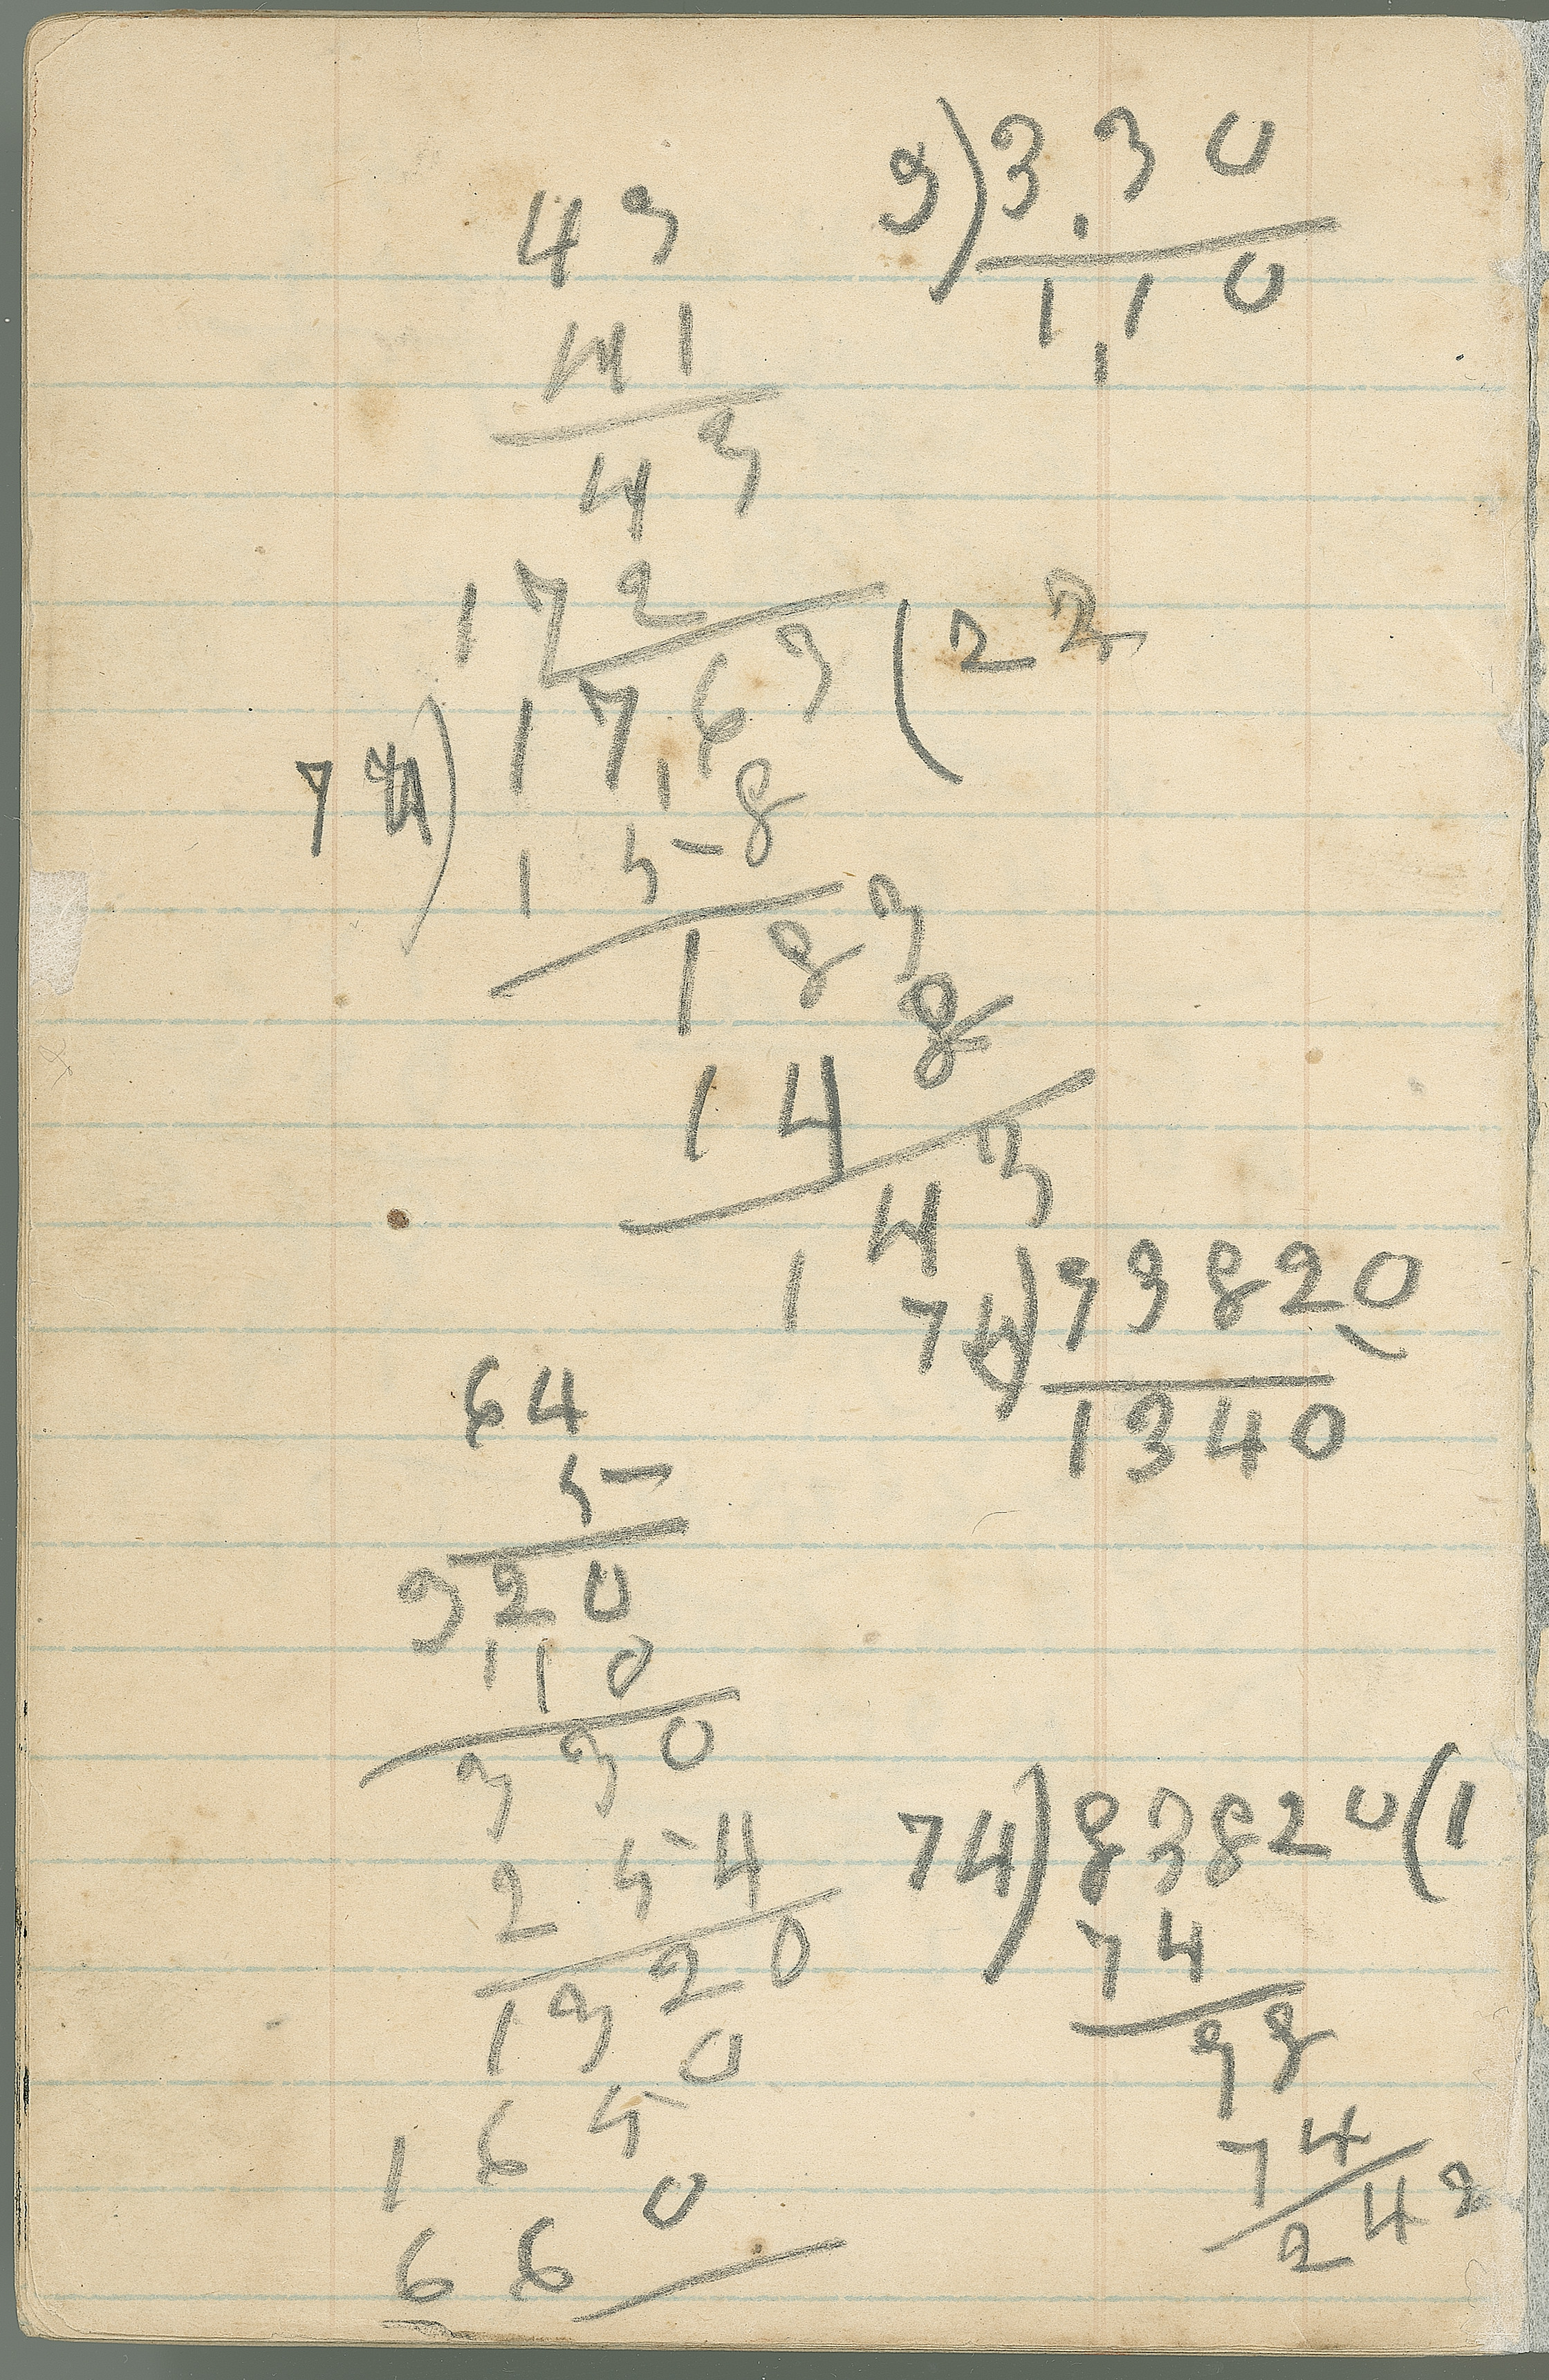 3)3.30
1,10
43
41
43
172
74)17,63(22
15 8
183
148
143
74)99820
1340
64
5
320
110
330
254
1320
1650
660
74)83820(1
74
98
74
242